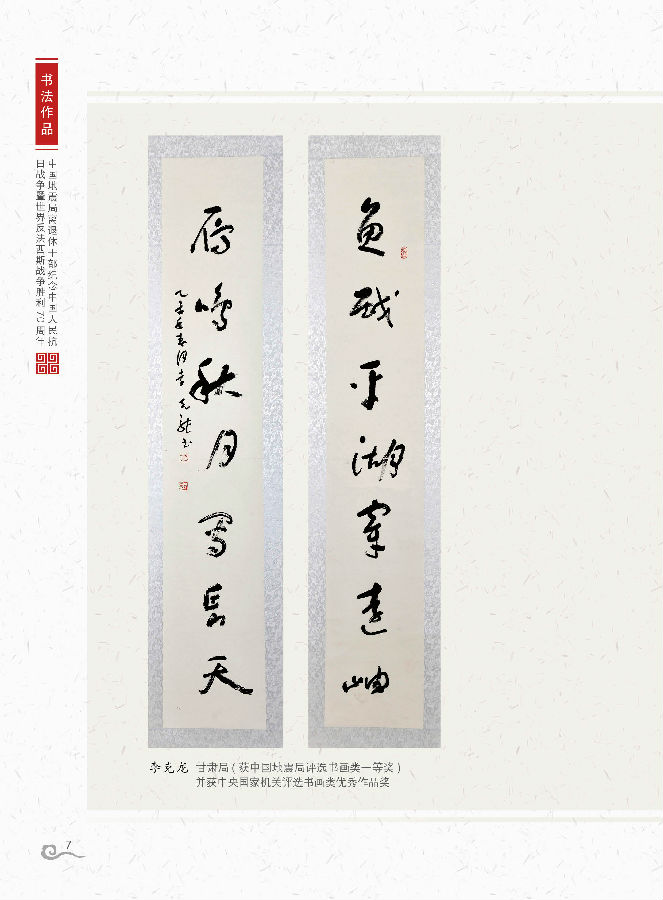 书法作品
中国地震局离退休干部纪念中国人民抗
日战争暨世界反法西斯战争胜利70周年
鱼戏平湖穿远岫
雁鸣秋月写长天
李克龙 甘肃局（获中国地震局评选书画类一等奖）
并获中央国家机关评选书画类优秀作品奖
7